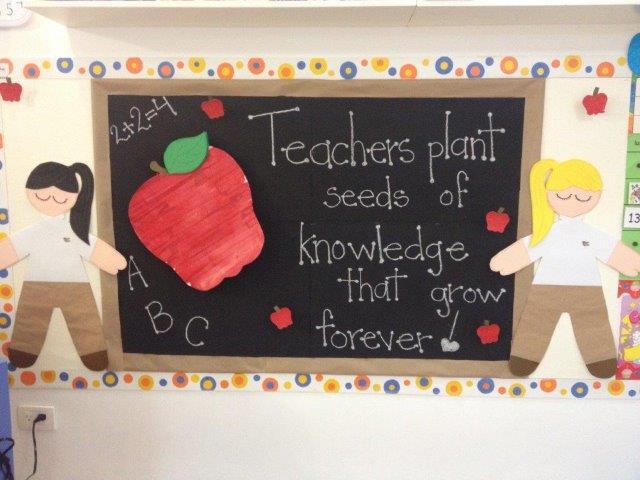 2+2=4
Teachers plant
seeds of
knowledge
that grow
forever
A
B
C
5
13